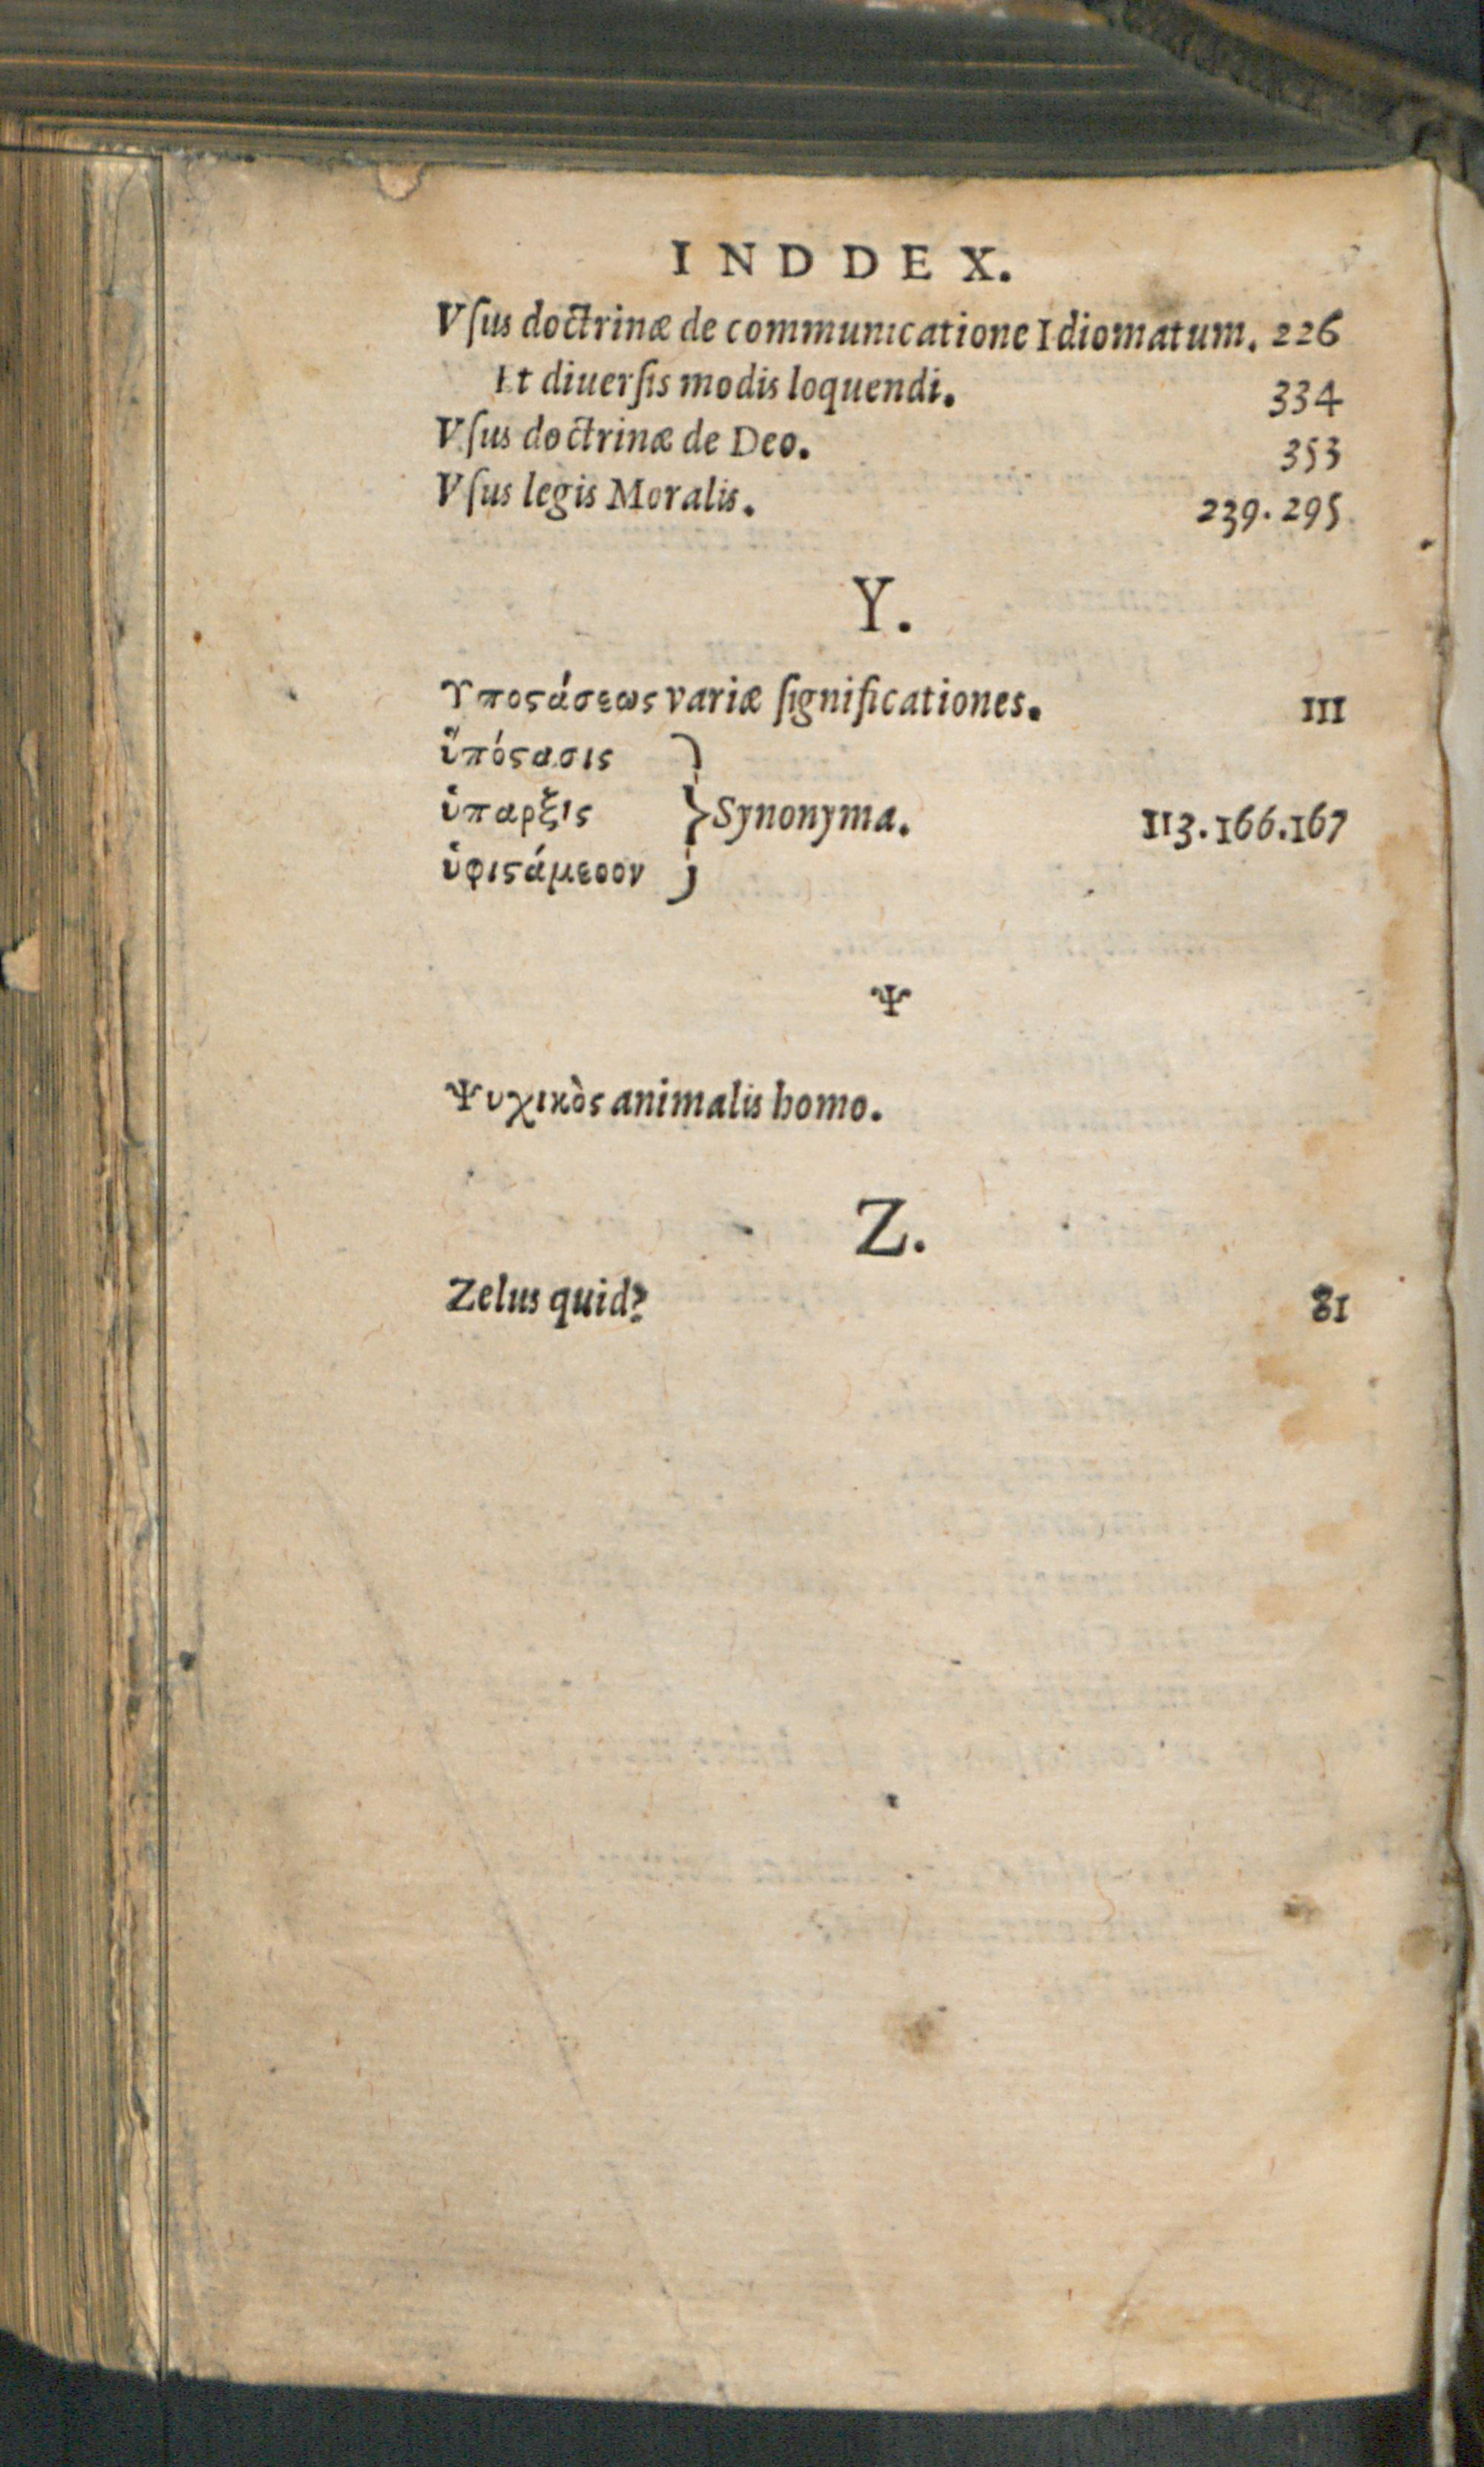 INDDEX.
Vſus doctrinæ de communicatione Idiomatum. 226
Et diuerſis modis loquendi. 334
Vſus doctrinæ de Deo. 353
Vſus legis Moralis. 239.295
Y.
Υποϛάσεως variæ ſignificationes. 111
ὑπόϛασις
ὑπαρξις } Synonyma. 113.166.167
ὑφιϛάμεοον
Ψ
Ψυχικὸς animalis homo.
Z.
Zelus quid? 81